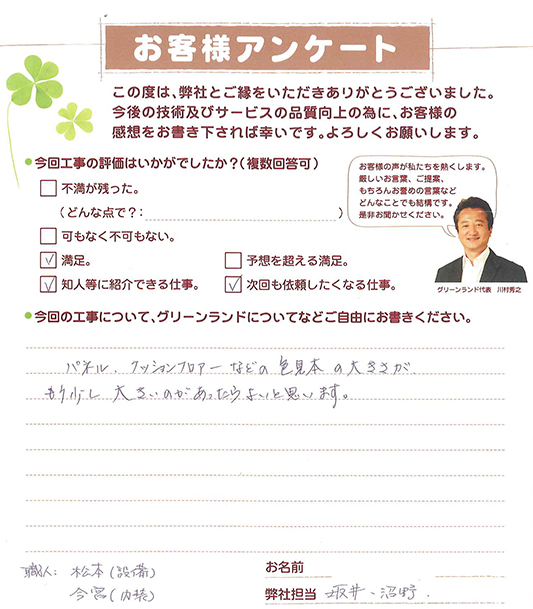 お客様アンケート
この度は、弊社とご縁をいただきありがとうございました。
今後の技術及びサービスの品質向上の為に、お客様の
感想をお書き下されば幸いです。よろしくお願いします。
●今回工事の評価はいかがでしたか？(複数回答可)
不満が残った。
(どんな点で？: )
可もなく不可もない。
満足。
予想を超える満足。
知人等に紹介できる仕事。
次回も依頼したくなる仕事。
お客様の声が私たちを熱くします。
厳しいお言葉、ご提案、
もちろんお誉めの言葉など
どんなことでも結構です。
是非お聞かせください。
グリーンランド代表 川村秀之
●今回の工事について、グリーンランドについてなどご自由にお書きください。
パネル、クッションフロアーなどの色見本の大きさが
もう少し大きいのがあったらよいと思います。
職人: 松本(設備)
今宮(内装)
お名前
弊社担当 坂井、沼野.